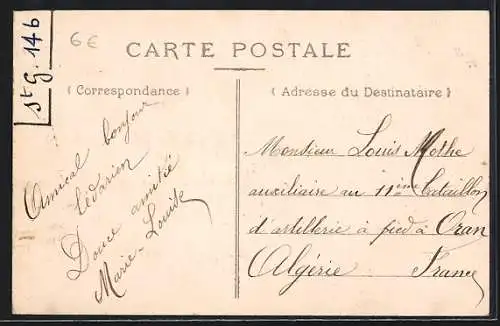 St G. 146
6 €
CARTE POSTALE
( Correspondance )
( Adresse du Destinataire )
Amical bonjour
lédarien
Douce amitié
Marie-Louise
Monsieur Louis Mothe
auxiliaire au 11ème bataillon
d'artillerie à pied à Oran
Algérie France